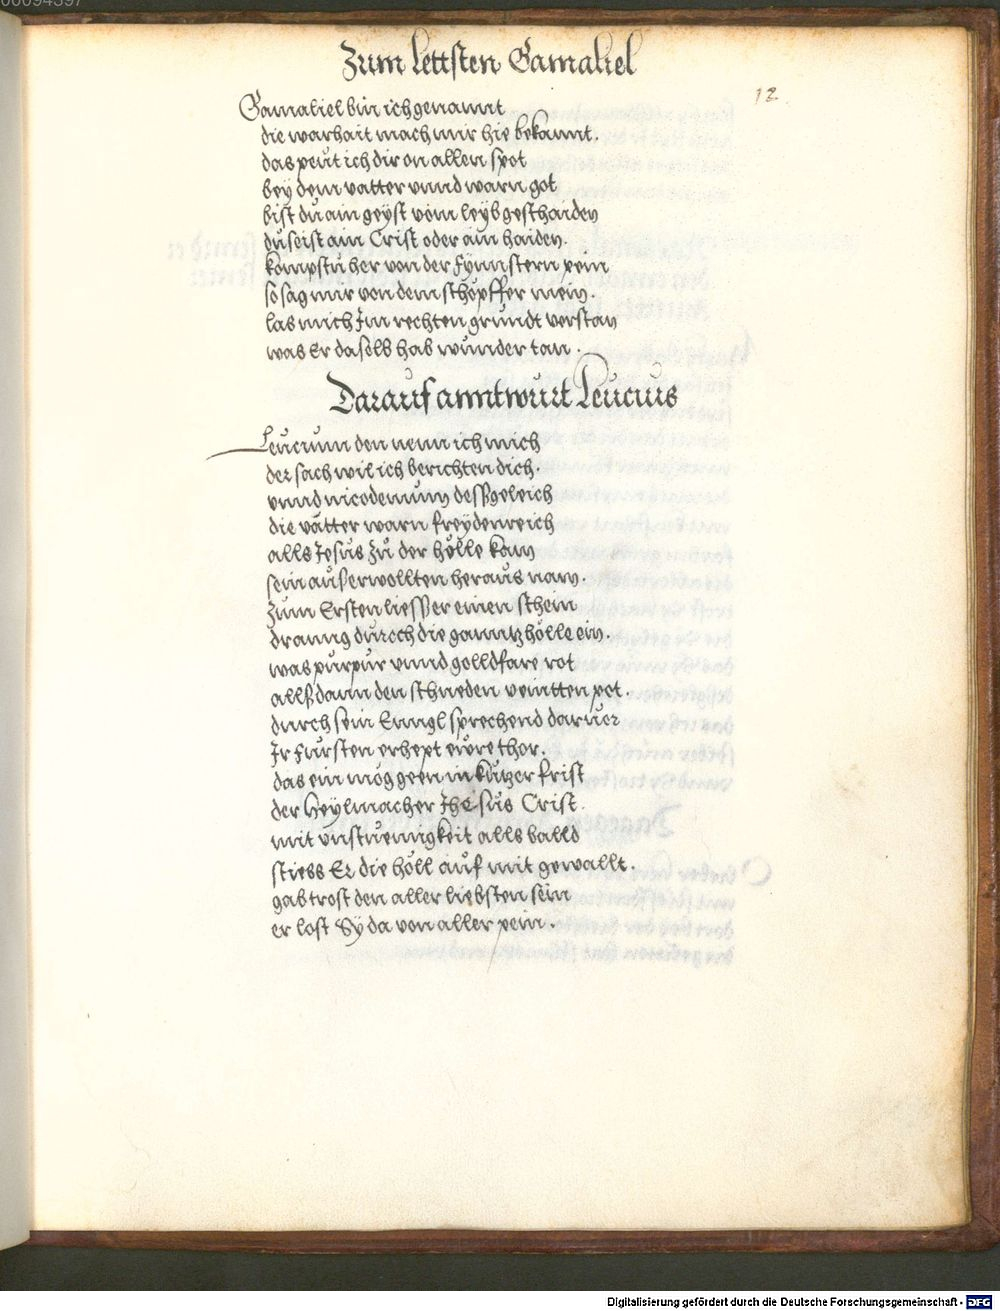 Zum lettsten Gamaliel
12
Gamaliel bin ich genannt
die warhait mach mir hie bekannt.
das peut ich dir on allen spot
bey dem vatter vnnd warn got
bist du ain geyst vom leyb geschaiden
du seist ain Crist oder ain haiden.
kompstu her von der fynnstern pein
so sag mir von dem schopffer mein.
las mich Im rechten grundt verstan
was Er daselb hab wunder tan.
Darauf anntwurt Leucius
Leucium den nenn ich mich
der sach wil ich berichten dich
vnnd nicodemum dessgeleich
die vätter warn freydenreich
alls Jesus zu der hölle kam
sein ausserwollten heraus nam.
Zum Ersten liess er einen schein
dranng durch die ganntz hölle ein.
was purpur vnnd golldfare rot
allss dann den schnöden veintten pot.
durch sein Enngl sprechend daruor
Ir fursten erhept euwre thor.
das ein mög geen in kurtzer frist
der heylmacher Jhesus Crist.
mit vngstuemigkeit alls balld
stiess Er die höll auf mit gewallt.
gab trost den aller liebsten sein
er lost Sy da von aller pein.
Digitalisierung gefördert durch die Deutsche Forschungsgemeinschaft - DFG